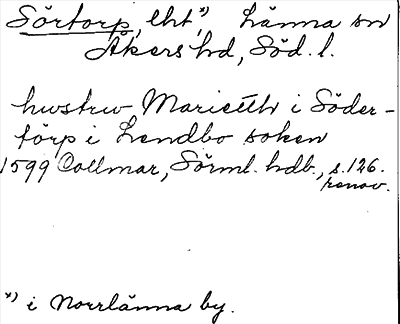 Sörtorp, lht, *) Länna sn
Åkers hd, Söd. l.
hustru Marieth i Söder-
torp i Lendbo soken
1599 Collmar, Sörml. hdb., s. 126.
renov.
*) i Norrlänna by.